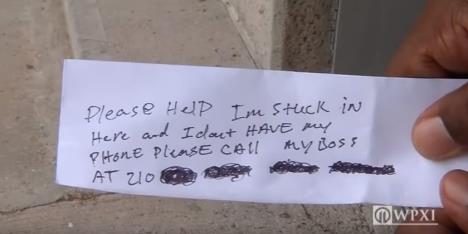 Please Help Im stuck in
Here and I dont HAVE my
PHONE Please CALL MY BOSS
AT 210
WPXI